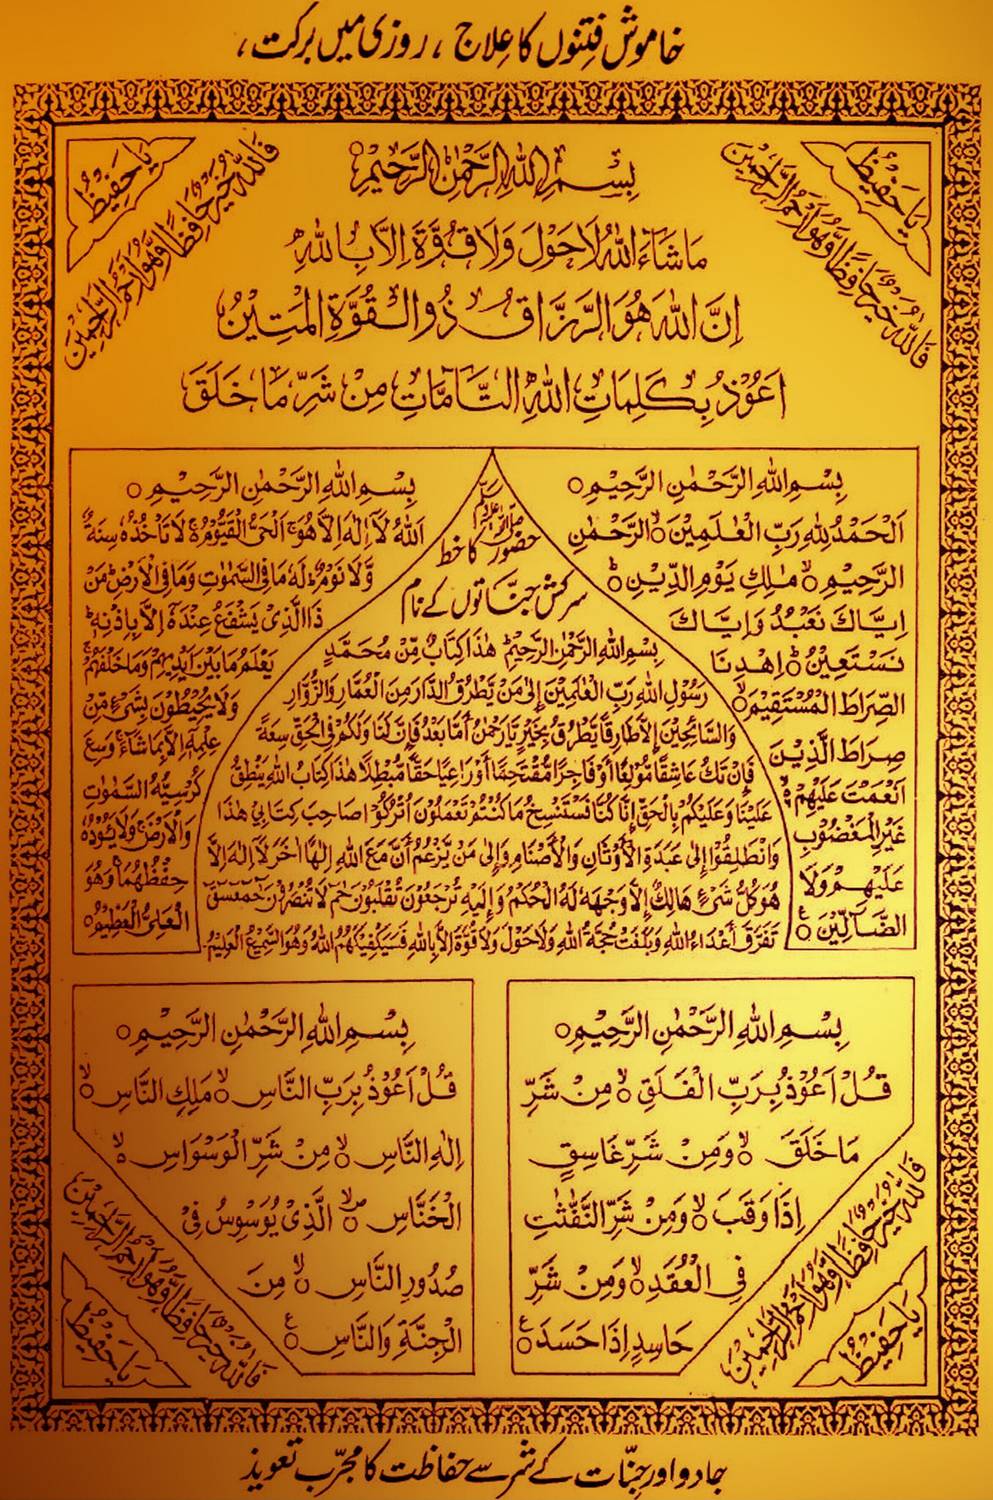 خاموش فتنوں کا علاج ، روزی میں برکت ،
یا حفیظ
فاللہ خیر حافظا وھو ارحم الراحمین
یا حفیظ
فاللہ خیر حافظا وھو ارحم الراحمین
بِسْمِ اللهِ الرَّحْمٰنِ الرَّحِيْمِ
مَا شَآءَ اللهُ لَا حَوْلَ وَلَا قُوَّةَ اِلَّا بِاللهِ
اِنَّ اللهَ هُوَ الرَّزَّاقُ ذُو الْقُوَّةِ الْمَتِيْنُ
اَعُوْذُ بِكَلِمَاتِ اللهِ التَّامَّاتِ مِنْ شَرِّ مَا خَلَقَ
بِسْمِ اللهِ الرَّحْمٰنِ الرَّحِيْمِ ○
اَلْحَمْدُ لِلّٰهِ رَبِّ الْعٰلَمِيْنَ ○ الرَّحْمٰنِ
الرَّحِيْمِ ○ مٰلِكِ يَوْمِ الدِّيْنِ ○
اِيَّاكَ نَعْبُدُ وَاِيَّاكَ
نَسْتَعِيْنُ ○ اِهْدِنَا
الصِّرَاطَ الْمُسْتَقِيْمَ ○
صِرَاطَ الَّذِيْنَ
اَنْعَمْتَ عَلَيْهِمْ
غَيْرِ الْمَغْضُوْبِ
عَلَيْهِمْ وَلَا
الضَّآلِّيْنَ ○
حضور صلی اللہ علیہ وسلم کا خط
سرکش جنّاتوں کے نام
بِسْمِ اللهِ الرَّحْمٰنِ الرَّحِيْمِ هٰذَا كِتَابٌ مِّنْ مُحَمَّدٍ
رَسُوْلِ اللهِ رَبِّ الْعٰلَمِيْنَ اِلٰى مَنْ يَّطْرُقُ الدَّارَ مِنَ الْعُمَّارِ وَالزُّوَّارِ
وَالسَّائِحِيْنَ اِلَّا طَارِقًا يَّطْرُقُ بِخَيْرٍ يَّا رَحْمٰنُ اَمَّا بَعْدُ فَاِنَّ لَنَا وَلَكُمْ فِي الْحَقِّ سَعَةً
فَاِنْ تَكُ عَاشِقًا مُّوْلِعًا اَوْ فَاجِرًا مُّقْتَحِمًا اَوْ رَاعِيًا حَقًّا مُّبْطِلًا هٰذَا كِتَابُ اللهِ يَنْطِقُ
عَلَيْنَا وَعَلَيْكُمْ بِالْحَقِّ اِنَّا كُنَّا نَسْتَنْسِخُ مَا كُنْتُمْ تَعْمَلُوْنَ اُتْرُكُوْا صَاحِبَ كِتَابِيْ هٰذَا
وَانْطَلِقُوْا اِلٰى عَبَدَةِ الْاَوْثَانِ وَالْاَصْنَامِ وَاِلٰى مَنْ يَّزْعُمُ اَنَّ مَعَ اللهِ اِلٰهًا اٰخَرَ لَا اِلٰهَ اِلَّا
هُوَ كُلُّ شَيْءٍ هَالِكٌ اِلَّا وَجْهَهُ لَهُ الْحُكْمُ وَاِلَيْهِ تُرْجَعُوْنَ تُقْلَبُوْنَ حٰمٓ لَا تُنْصَرُوْنَ حٰمٓ عٓسٓقٓ
تَفَرَّقَ اَعْدَاءُ اللهِ وَبَلَغَتْ حُجَّةُ اللهِ وَلَا حَوْلَ وَلَا قُوَّةَ اِلَّا بِاللهِ فَسَيَكْفِيْكَهُمُ اللهُ وَهُوَ السَّمِيْعُ الْعَلِيْمُ
بِسْمِ اللهِ الرَّحْمٰنِ الرَّحِيْمِ ○
اَللهُ لَآ اِلٰهَ اِلَّا هُوَ اَلْحَيُّ الْقَيُّوْمُ لَا تَاْخُذُهٗ سِنَةٌ
وَّلَا نَوْمٌ لَهٗ مَا فِي السَّمٰوٰتِ وَمَا فِي الْاَرْضِ مَنْ
ذَا الَّذِيْ يَشْفَعُ عِنْدَهٗ اِلَّا بِاِذْنِهٖ
يَعْلَمُ مَا بَيْنَ اَيْدِيْهِمْ وَمَا خَلْفَهُمْ
وَلَا يُحِيْطُوْنَ بِشَيْءٍ مِّنْ
عِلْمِهٖ اِلَّا بِمَا شَآءَ وَسِعَ
كُرْسِيُّهُ السَّمٰوٰتِ
وَالْاَرْضَ وَلَا يَئُوْدُهٗ
حِفْظُهُمَا وَهُوَ
الْعَلِيُّ الْعَظِيْمُ ○
بِسْمِ اللهِ الرَّحْمٰنِ الرَّحِيْمِ ○
قُلْ اَعُوْذُ بِرَبِّ الْفَلَقِ ○ مِنْ شَرِّ
مَا خَلَقَ ○ وَمِنْ شَرِّ غَاسِقٍ
اِذَا وَقَبَ ○ وَمِنْ شَرِّ النَّفّٰثٰتِ
فِي الْعُقَدِ ○ وَمِنْ شَرِّ
حَاسِدٍ اِذَا حَسَدَ ○
بِسْمِ اللهِ الرَّحْمٰنِ الرَّحِيْمِ ○
قُلْ اَعُوْذُ بِرَبِّ النَّاسِ ○ مَلِكِ النَّاسِ ○
اِلٰهِ النَّاسِ ○ مِنْ شَرِّ الْوَسْوَاسِ ○
الْخَنَّاسِ الَّذِيْ يُوَسْوِسُ فِيْ
صُدُوْرِ النَّاسِ ○ مِنَ
الْجِنَّةِ وَالنَّاسِ ○
فاللہ خیر حافظا وھو ارحم الراحمین
یا حفیظ
فاللہ خیر حافظا وھو ارحم الراحمین
یا حفیظ
جادو اور جنّات کے شر سے حفاظت کا مجرّب تعویذ